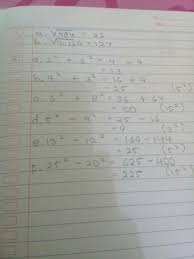 a. √484 = 22
b. √16.129 = 127
a. 2² + 3² = 4 + 9
= 13
b. 4² + 3² = 16 + 9
= 25 (5²)
c. 6² + 8² = 36 + 64
= 100
d. 5² - 4² = 25 - 16
= 9
e. 13² - 12² = 169 - 144
= 25 (5²)
f. 25² - 20² = 625 - 400
= 225 (15²)